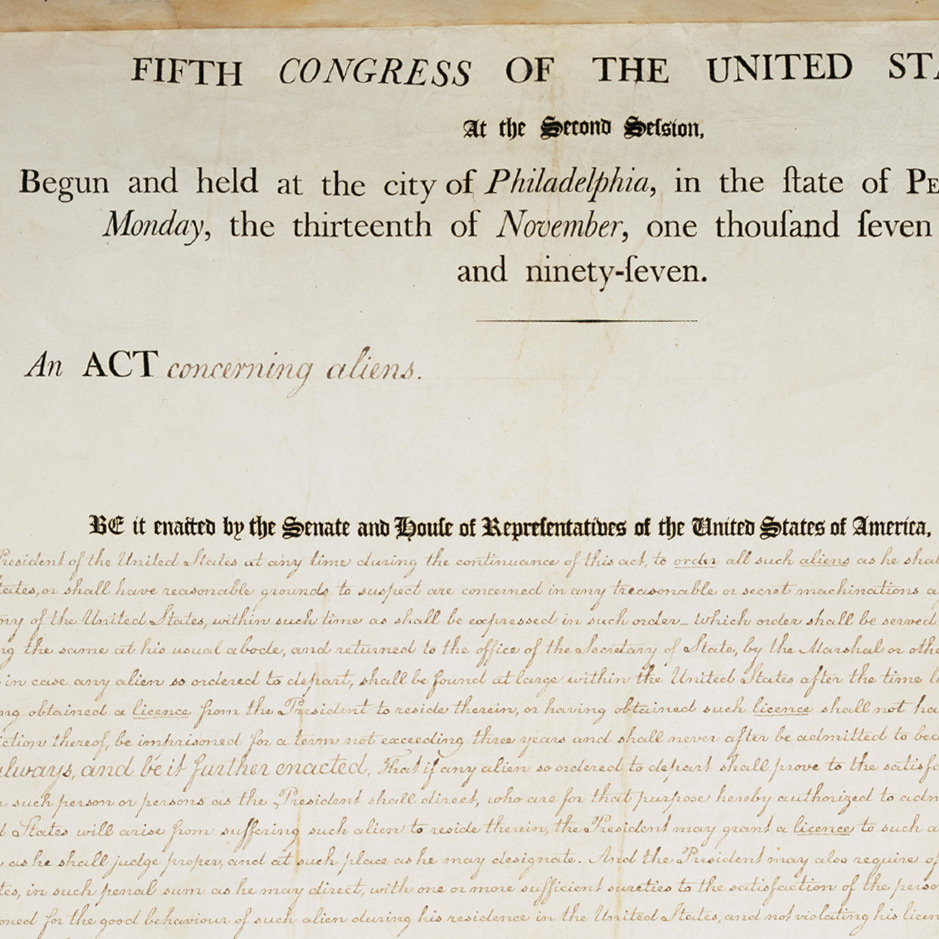 FIFTH CONGRESS OF THE UNITED STA
At the Second Seſsion,
Begun and held at the city of Philadelphia, in the ſtate of PE
Monday, the thirteenth of November, one thouſand ſeven
and ninety-ſeven.
An ACT concerning aliens.
BE it enacted by the Senate and Houſe of Repreſentatives of the United States of America,
President of the United States at any time during the continuance of this act, to order all such aliens as he shal
tates, or shall have reasonable grounds to suspect are concerned in any treasonable or secret machinations a
ory of the United States, within such time as shall be expressed in such order_ which order shall be served
ng the same at his usual abode, and returned to the office of the Secretary of State, by the Marshal or othe
in case any alien so ordered to depart, shall be found at large within the United States after the time l
ng obtained a licence from the President to reside therein, or having obtained such licence shall not ha
iction thereof, be imprisoned for a term not exceeding three years and shall never after be admitted to bec
always, and be it further enacted, that if any alien so ordered to depart shall prove to the satisfa
such person or persons as the President shall direct, who are for that purpose hereby authorized to adm
d States will arise from suffering such alien to reside therein, the President may grant a licence to such a
as he shall judge proper, and at such place as he may designate. And the President may also require of
tes, in such penal sum as he may direct, with one or more sufficient sureties to the satisfaction of the perso
oned for the good behaviour of such alien during his residence in the United States, and not violating his licen